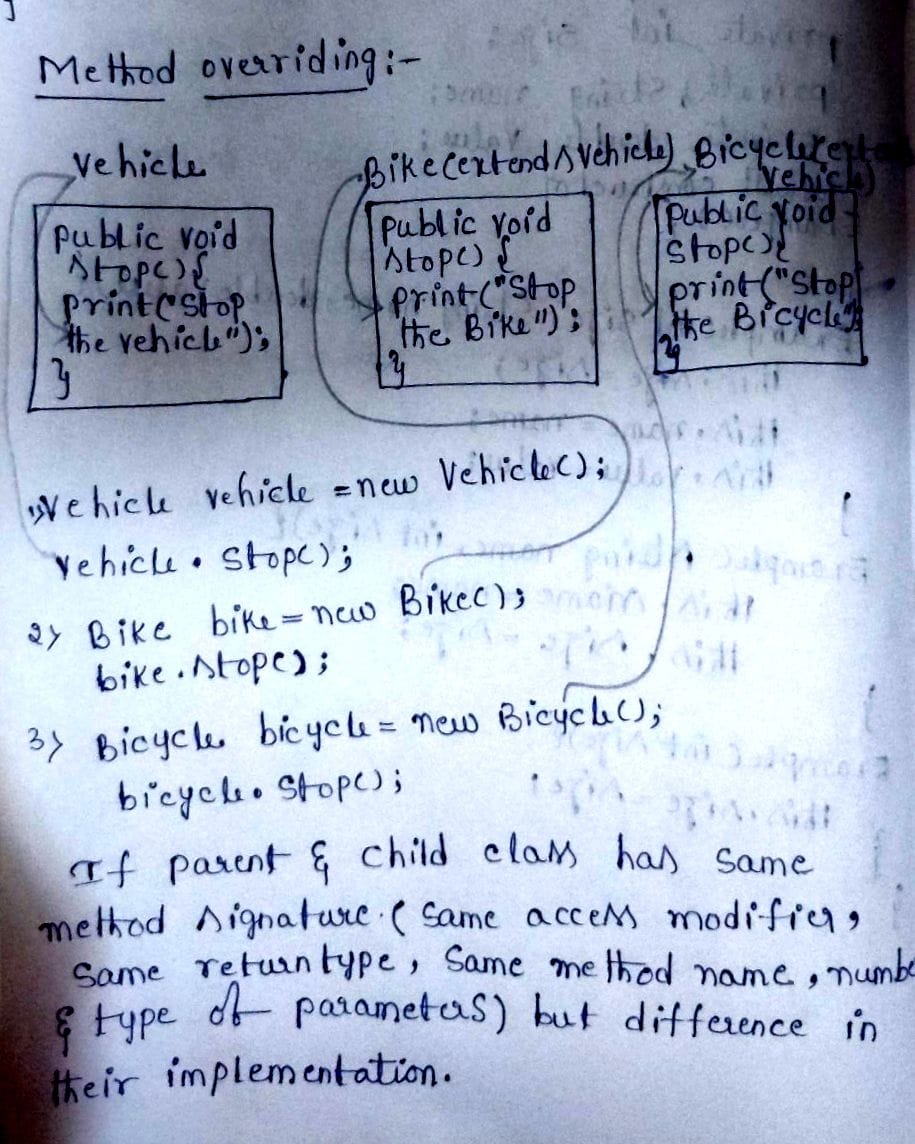 Method overriding:-
vehicle
public void
stop(){
print("stop
the vehicle");
}
Bike(extends vehicle)
public void
stop() {
print("Stop
the Bike");
}
Bicycle(extends
vehicle)
public void
stop(){
print("Stop
the Bicycle");
}
1) Vehicle vehicle = new Vehicle();
vehicle. stop();
2) Bike bike = new Bike();
bike.stop();
3) Bicycle bicycle = new Bicycle();
bicycle. stop();
If parent & child class has same
method signature (same access modifier,
same return type, same method name, numbe
& type of parameters) but difference in
their implementation.